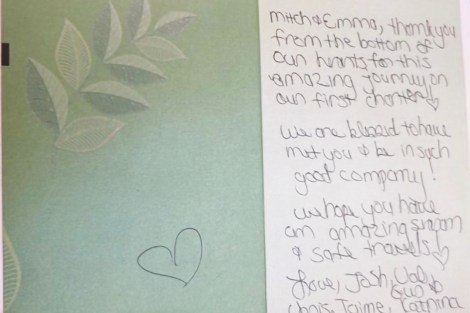 mitch & Emma, thank you
from the bottom of
our hearts for this
amazing journey on
our first charter
we are blessed to have
met you & be in such
good company!
we hope you have
an amazing season
& safe travels!
Love, Josh, Val,
Gus &
Chris, Jaime, Catrina